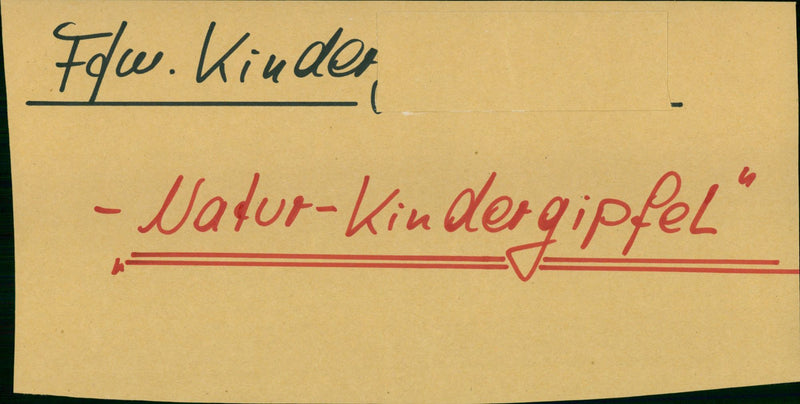 Fdw. Kinder
- Natur-Kindergipfel"
"